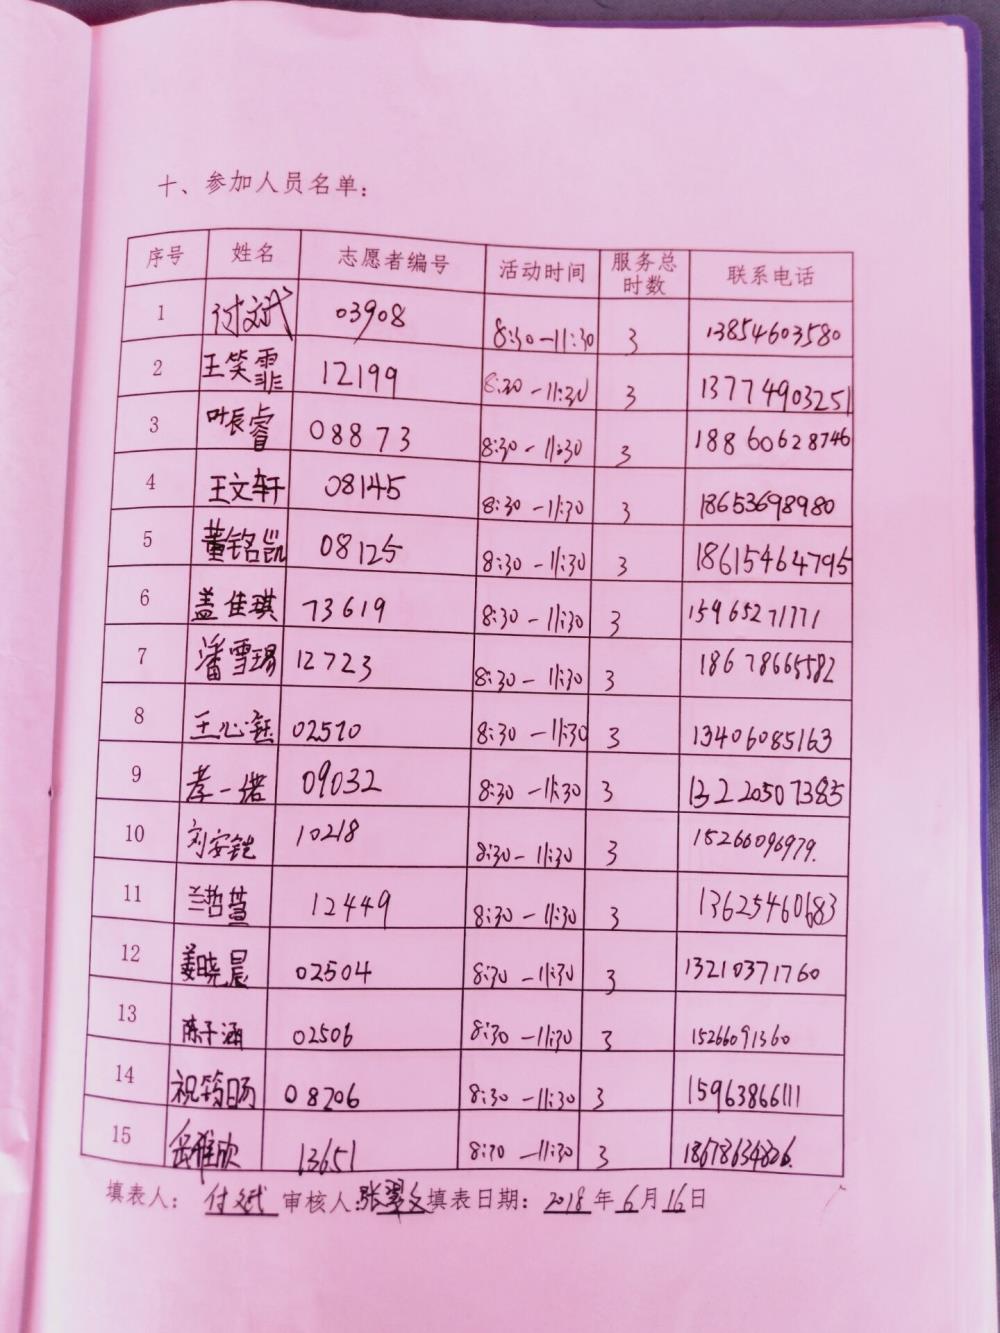 十、参加人员名单：
序号 姓名 志愿者编号 活动时间 服务总时数 联系电话
1 付文斌 03908 8:30-11:30 3 13854603580
2 王笑霏 12199 8:30-11:30 3 13774903251
3 叶辰睿 08873 8:30-11:30 3 18860628746
4 王文轩 08145 8:30-11:30 3 18653698980
5 董铭凯 08125 8:30-11:30 3 18615464795
6 盖佳琪 73619 8:30-11:30 3 15965271771
7 潘雪瑒 12723 8:30-11:30 3 18678665582
8 王心钰 02570 8:30-11:30 3 13406085163
9 一诺 09032 8:30-11:30 3 13220507385
10 刘安铠 10218 8:30-11:30 3 15266096979.
11 兰哲萱 12449 8:30-11:30 3 13625460683
12 姜晓晨 02504 8:30-11:30 3 13210371760
13 陈子涵 02506 8:30-11:30 3 15266091360
14 祝筠旸 08206 8:30-11:30 3 15963866111
15 岳雅欣 13651 8:30-11:30 3 18678634826.
填表人：付文斌 审核人：张翠文 填表日期：2018年6月16日